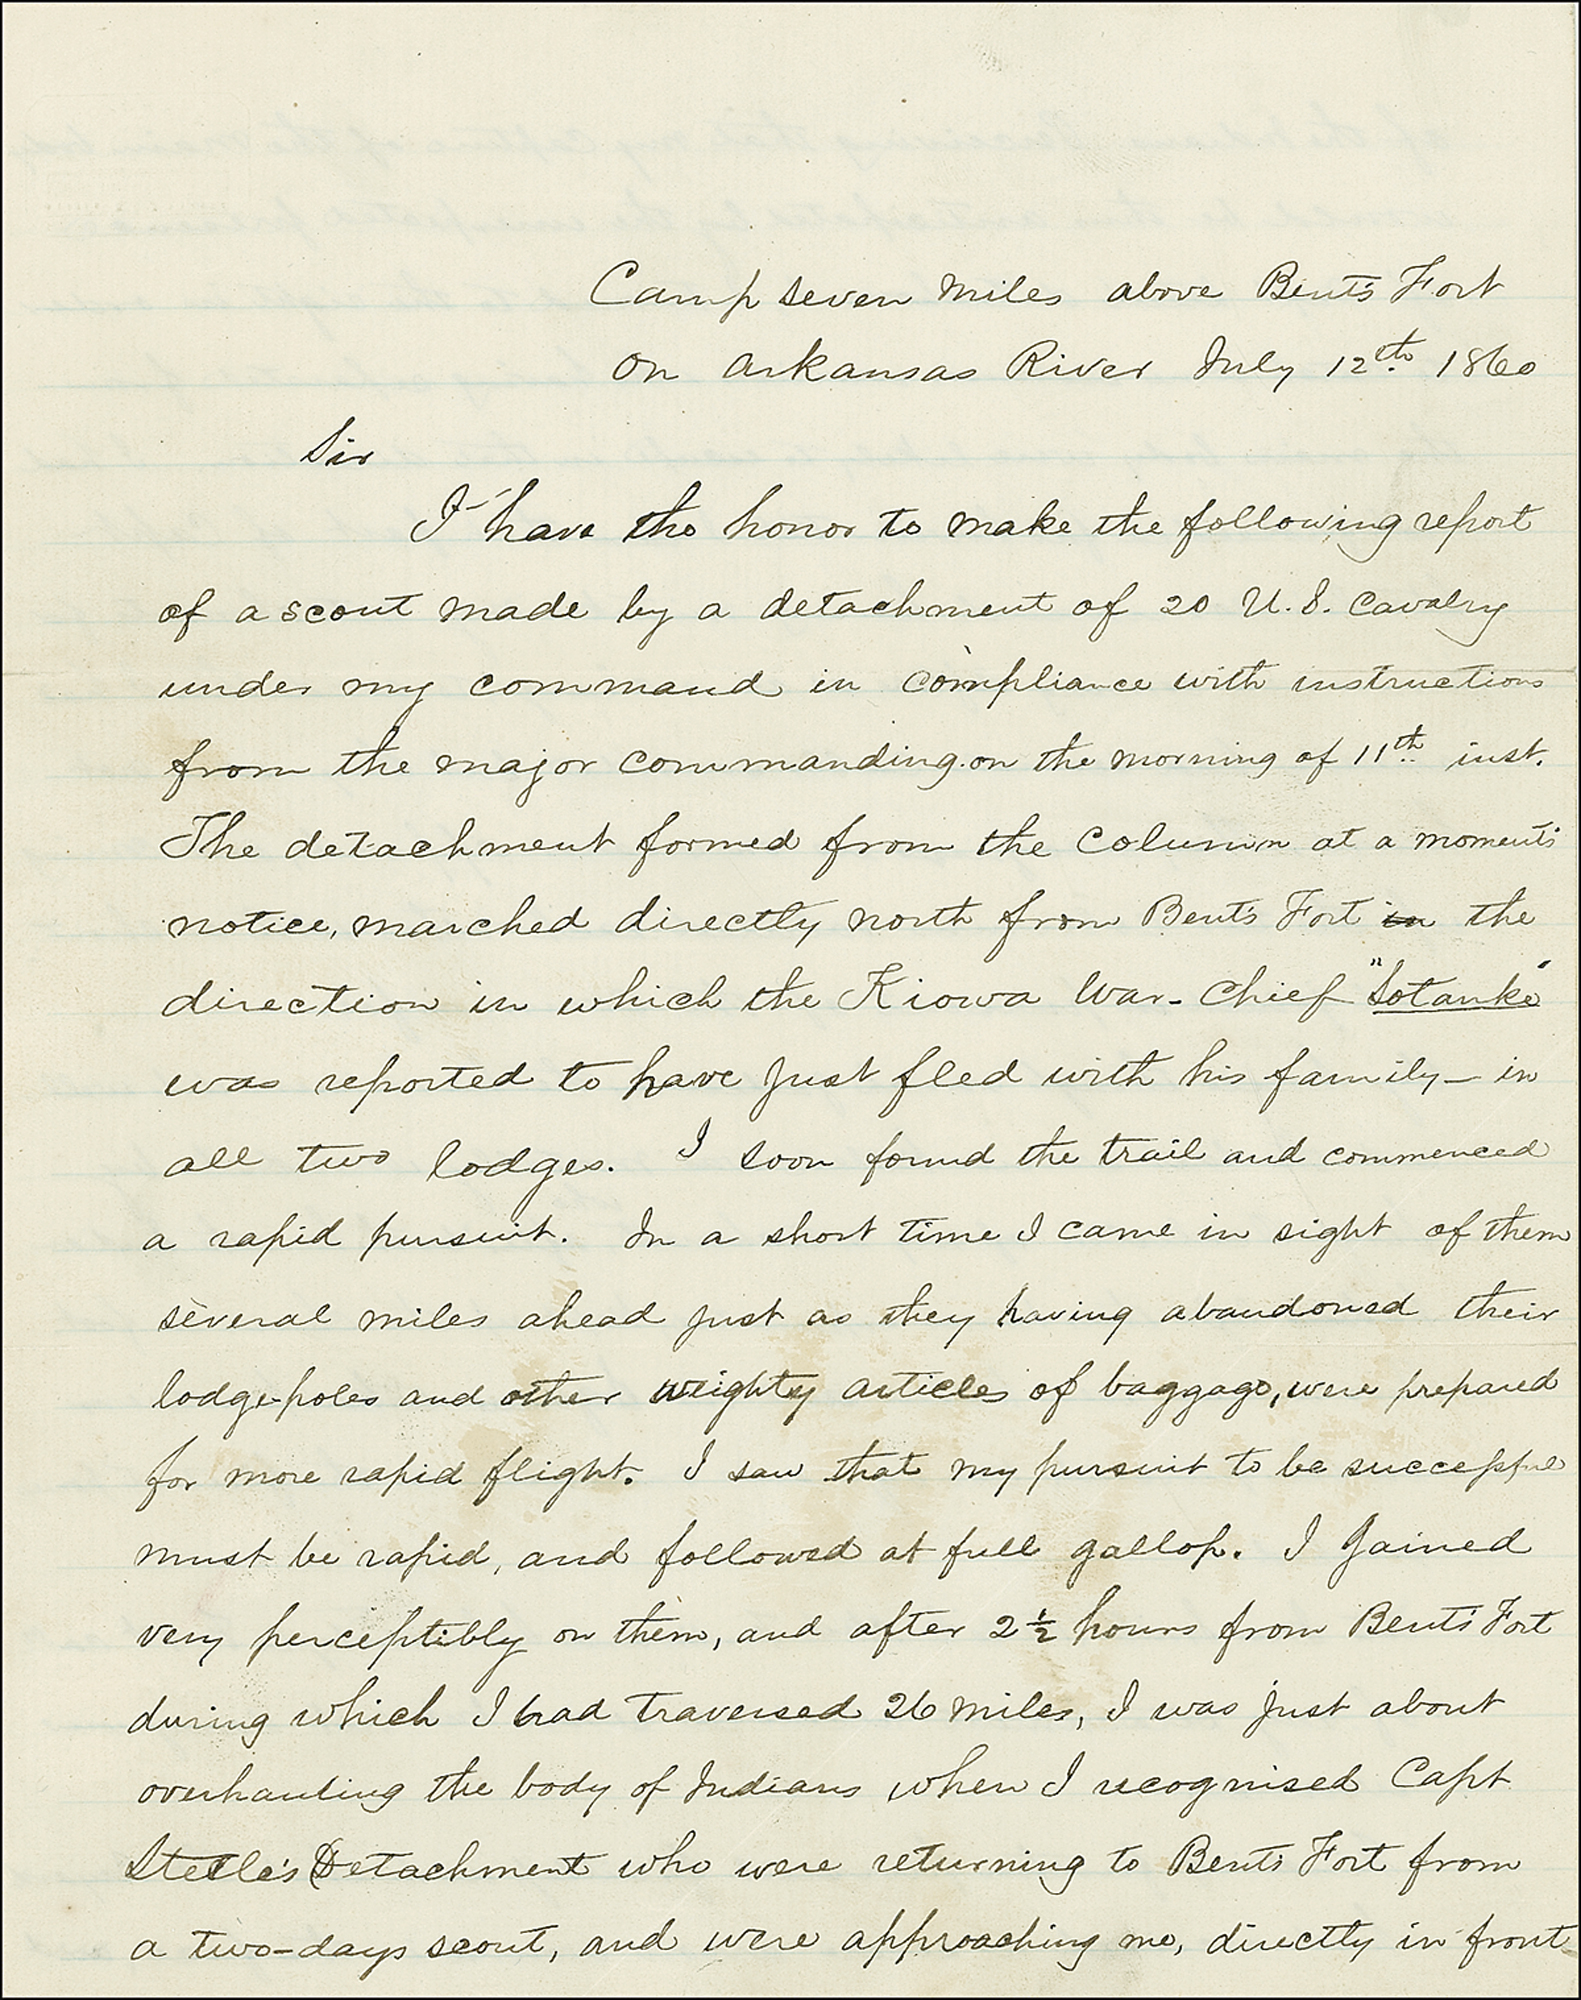 Camp seven miles above Bent's Fort
on Arkansas River July 12th. 1860
Sir
I have the honor to make the following report
of a scout made by a detachment of 20 U.S. Cavalry
under my command in compliance with instructions
from the major commanding on the morning of 11th. inst.
The detachment formed from the column at a moment's
notice, marched directly north from Bent's Fort in the
direction in which the Kiowa War-Chief "Sotanke"
was reported to have just fled with his family — in
all two lodges. I soon found the trail and commenced
a rapid pursuit. In a short time I came in sight of them
several miles ahead just as they having abandoned their
lodge-poles and other weighty articles of baggage, were prepared
for more rapid flight. I saw that my pursuit to be successful
must be rapid, and followed at full gallop. I gained
very perceptibly on them, and after 2½ hours from Bent's Fort
during which I had traversed 26 miles, I was just about
overhauling the body of Indians when I recognised Capt
Steele's Detachment who were returning to Bent's Fort from
a two-days scout, and were approaching me, directly in front